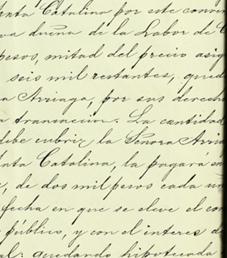 enta Catalina por este conven
va dueña de la Labor de C
pesos, mitad del precio asig
seis mil restantes, qued
a Arriaga, por sus derecho
a transaccion. La cantidad
debe cubrir la Señora Arria
anta Catalina, la pagara en
, de dos mil pesos cada un
fecha en que se eleve el con
público, y con el interes d
al: quedando hipotecada